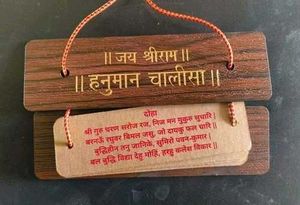 ॥ जय श्रीराम ॥
॥ हनुमान चालीसा ॥
दोहा
श्री गुरु चरण सरोज रज, निज मन मुकुरु सुधारि |
बरनऊँ रघुवर बिमल जसु, जो दायकु फल चारि ||
बुद्धिहीन तनु जानिके, सुमिरो पवन-कुमार |
बल बुद्धि विद्या देहु मोहिं, हरहु कलेस विकार ||